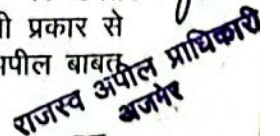 प्रकार से
अपील बाबत
राजस्व अपील प्राधिकारी
अजमेर